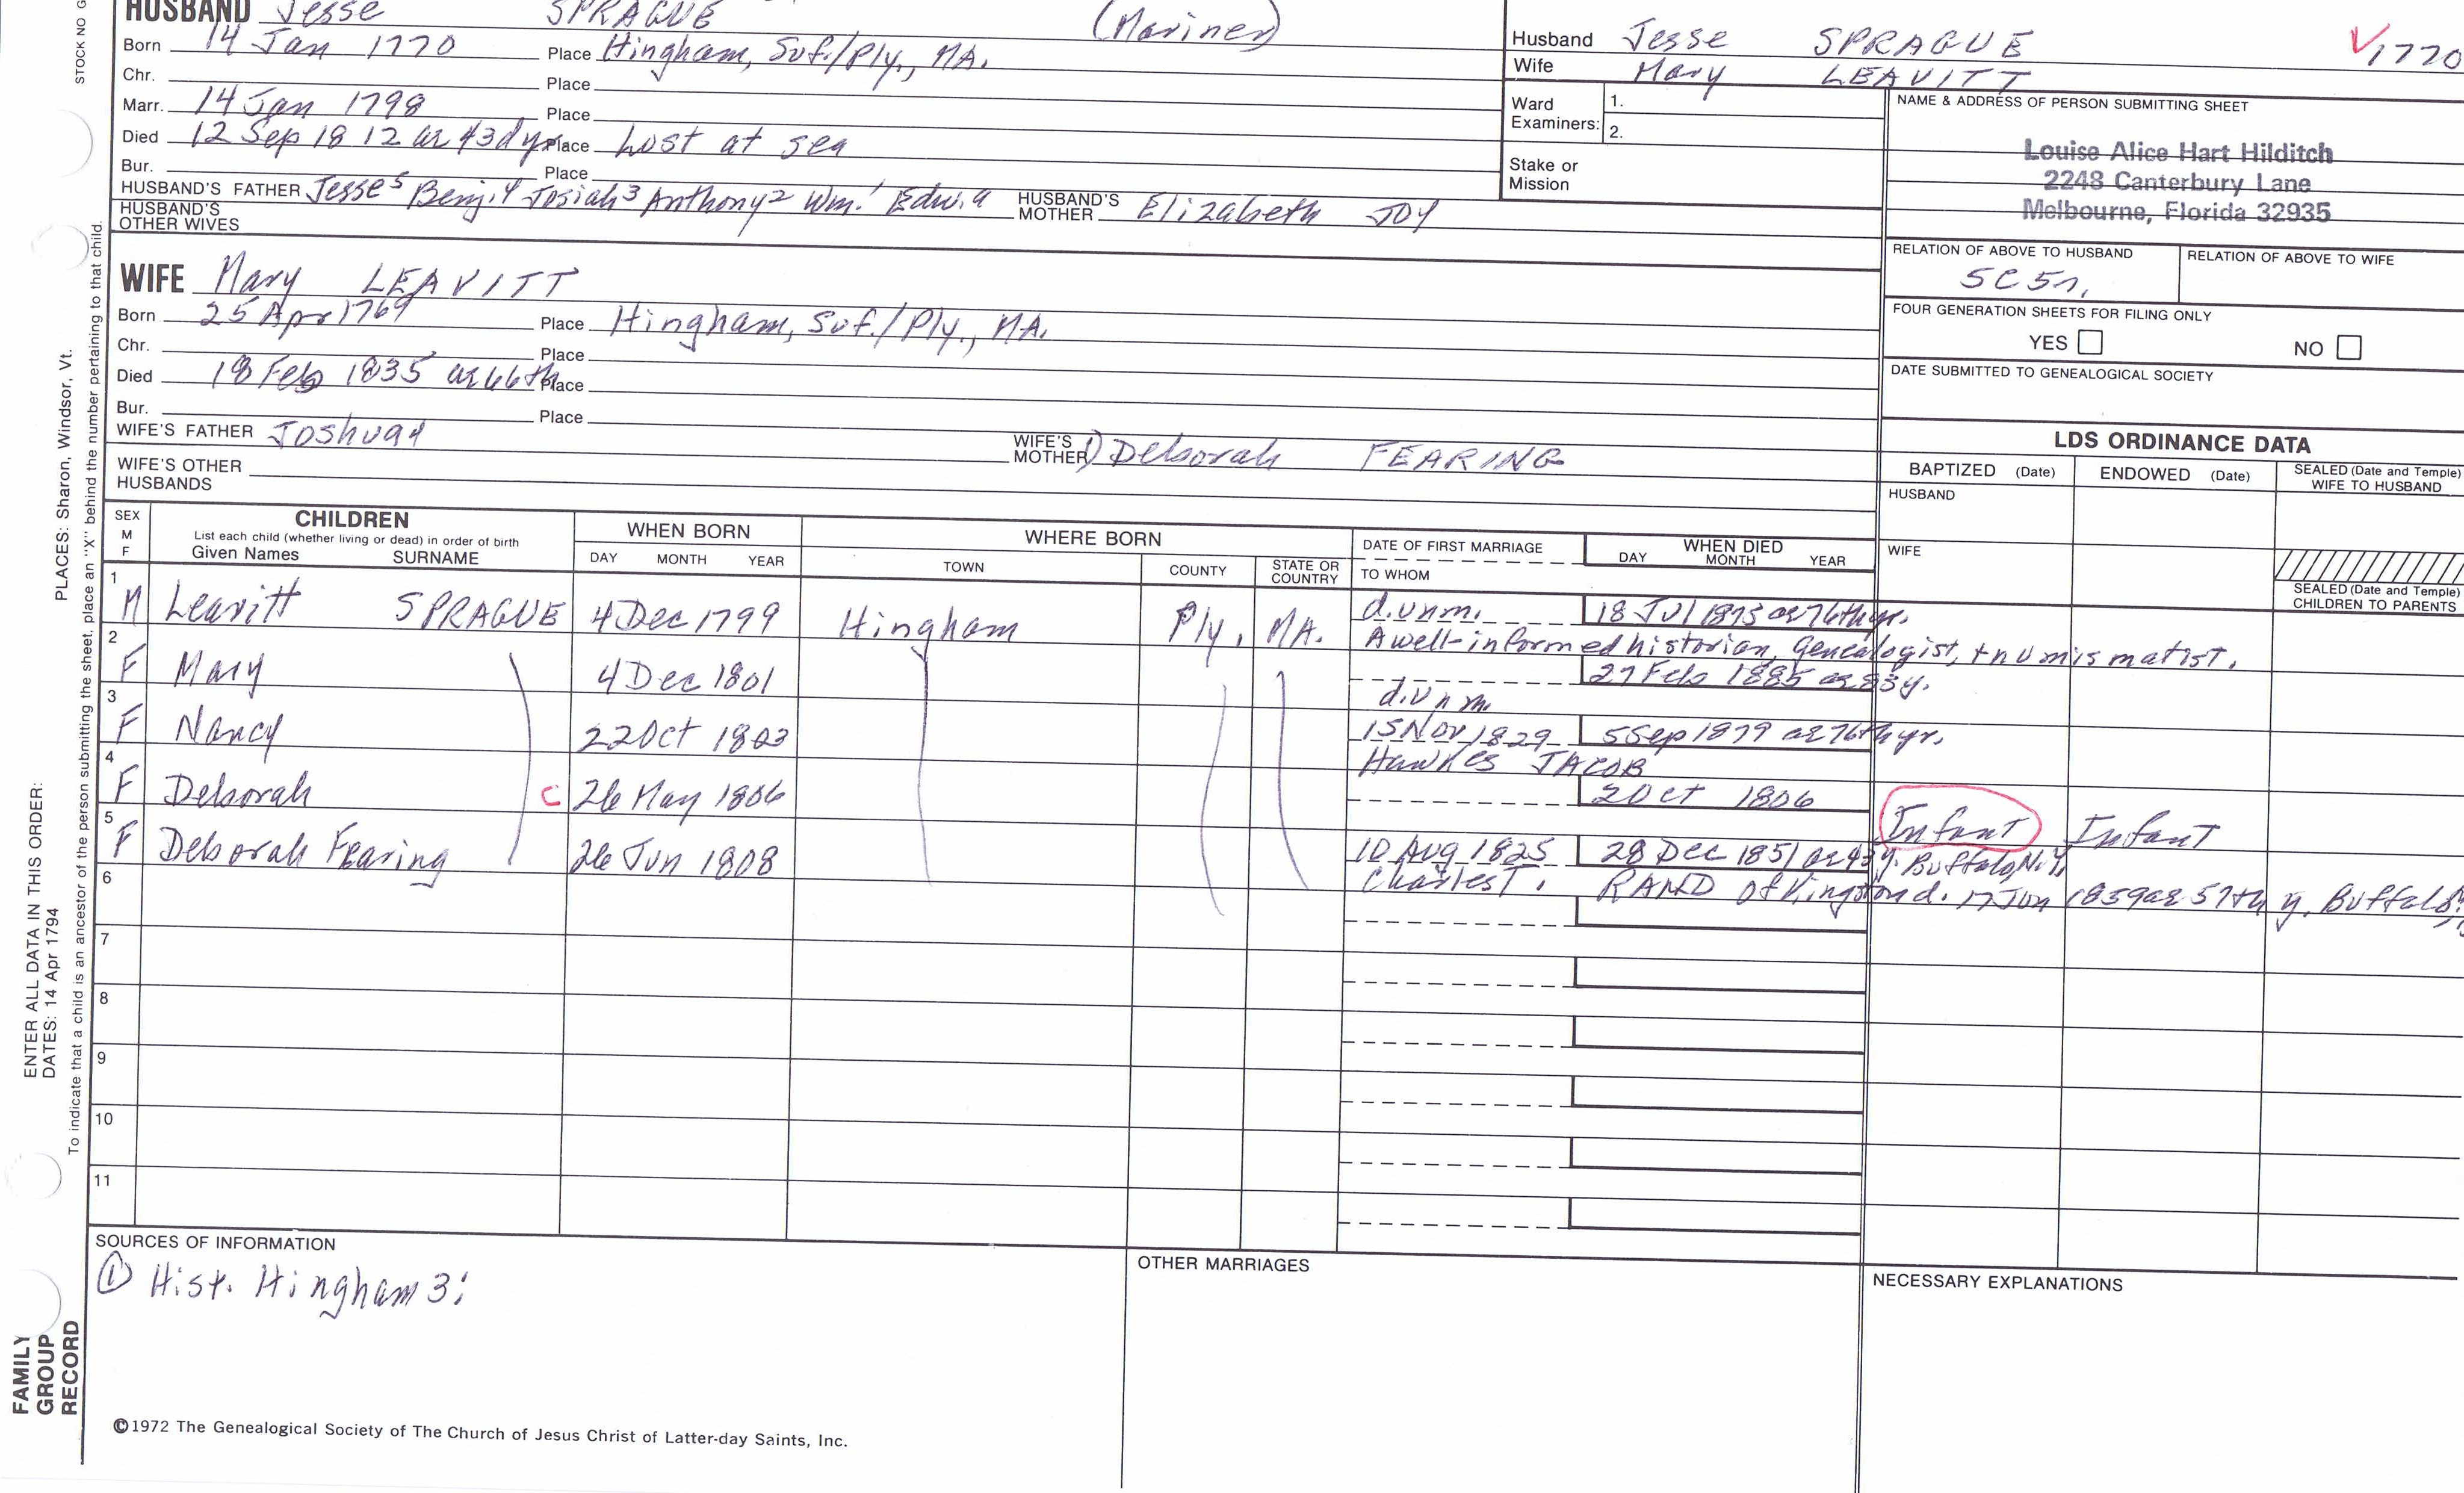 HUSBAND Jesse SPRAGUE (Mariner)
Born 14 Jan 1770 Place Hingham, Suf./Ply., MA.
Chr. Place
Marr. 14 Jan 1798 Place
Died 12 Sep 1812 ae 43d yr. Place Lost at sea
Bur. Place
HUSBAND'S FATHER Jesse5 Benj.4 Josiah3 Anthony2 Wm.1 Edw.a HUSBAND'S MOTHER Elizabeth JOY
HUSBAND'S OTHER WIVES
WIFE Mary LEAVITT
Born 25 Apr 1769 Place Hingham, Suf./Ply., MA.
Chr. Place
Died 18 Feb 1835 ae 66th Place
Bur. Place
WIFE'S FATHER Joshua4 WIFE'S MOTHER 1) Deborah FEARING
WIFE'S OTHER HUSBANDS
Husband Jesse SPRAGUE 1770
Wife Mary LEAVITT
Ward Examiners: 1.
2.
Stake or Mission
NAME & ADDRESS OF PERSON SUBMITTING SHEET
Louise Alice Hart Hilditch
2248 Canterbury Lane
Melbourne, Florida 32935
RELATION OF ABOVE TO HUSBAND RELATION OF ABOVE TO WIFE
5C5r,
FOUR GENERATION SHEETS FOR FILING ONLY
YES NO
DATE SUBMITTED TO GENEALOGICAL SOCIETY
LDS ORDINANCE DATA
BAPTIZED (Date) ENDOWED (Date) SEALED (Date and Temple) WIFE TO HUSBAND
HUSBAND
WIFE
SEALED (Date and Temple) CHILDREN TO PARENTS
SEX M F CHILDREN WHEN BORN WHERE BORN DATE OF FIRST MARRIAGE WHEN DIED
List each child (whether living or dead) in order of birth
Given Names SURNAME DAY MONTH YEAR TOWN COUNTY STATE OR COUNTRY TO WHOM DAY MONTH YEAR
1 M Leavitt SPRAGUE 4 Dec 1799 Hingham Ply. MA. d.unm. 18 Jul 1875 ae 76th yr.
A well-informed historian, genealogist, + numismatist.
2 F Mary 4 Dec 1801 d.unm. 27 Feb 1885 ae 83y.
3 F Nancy 22 Oct 1803 15 Nov 1829 5 Sep 1879 ae 76th yr.
Hawkes JACOB
4 F Deborah C 26 May 1806 2 Oct 1806 Infant Infant
5 F Deborah Fearing 26 Jun 1808 10 Aug 1825 28 Dec 1851 ae 43 y. Buffalo, N.Y.
Charles T. RAND of Kingston d. 17 Jun 1859 ae 57th y. Buffalo,
6
7
8
9
10
11
SOURCES OF INFORMATION
① Hist. Hingham 3:
OTHER MARRIAGES
NECESSARY EXPLANATIONS
©1972 The Genealogical Society of The Church of Jesus Christ of Latter-day Saints, Inc.
STOCK NO G
PLACES: Sharon, Windsor, Vt.
ENTER ALL DATA IN THIS ORDER:
DATES: 14 Apr 1794
To indicate that a child is an ancestor of the person submitting the sheet, place an "X" behind the number pertaining to that child.
FAMILY GROUP RECORD